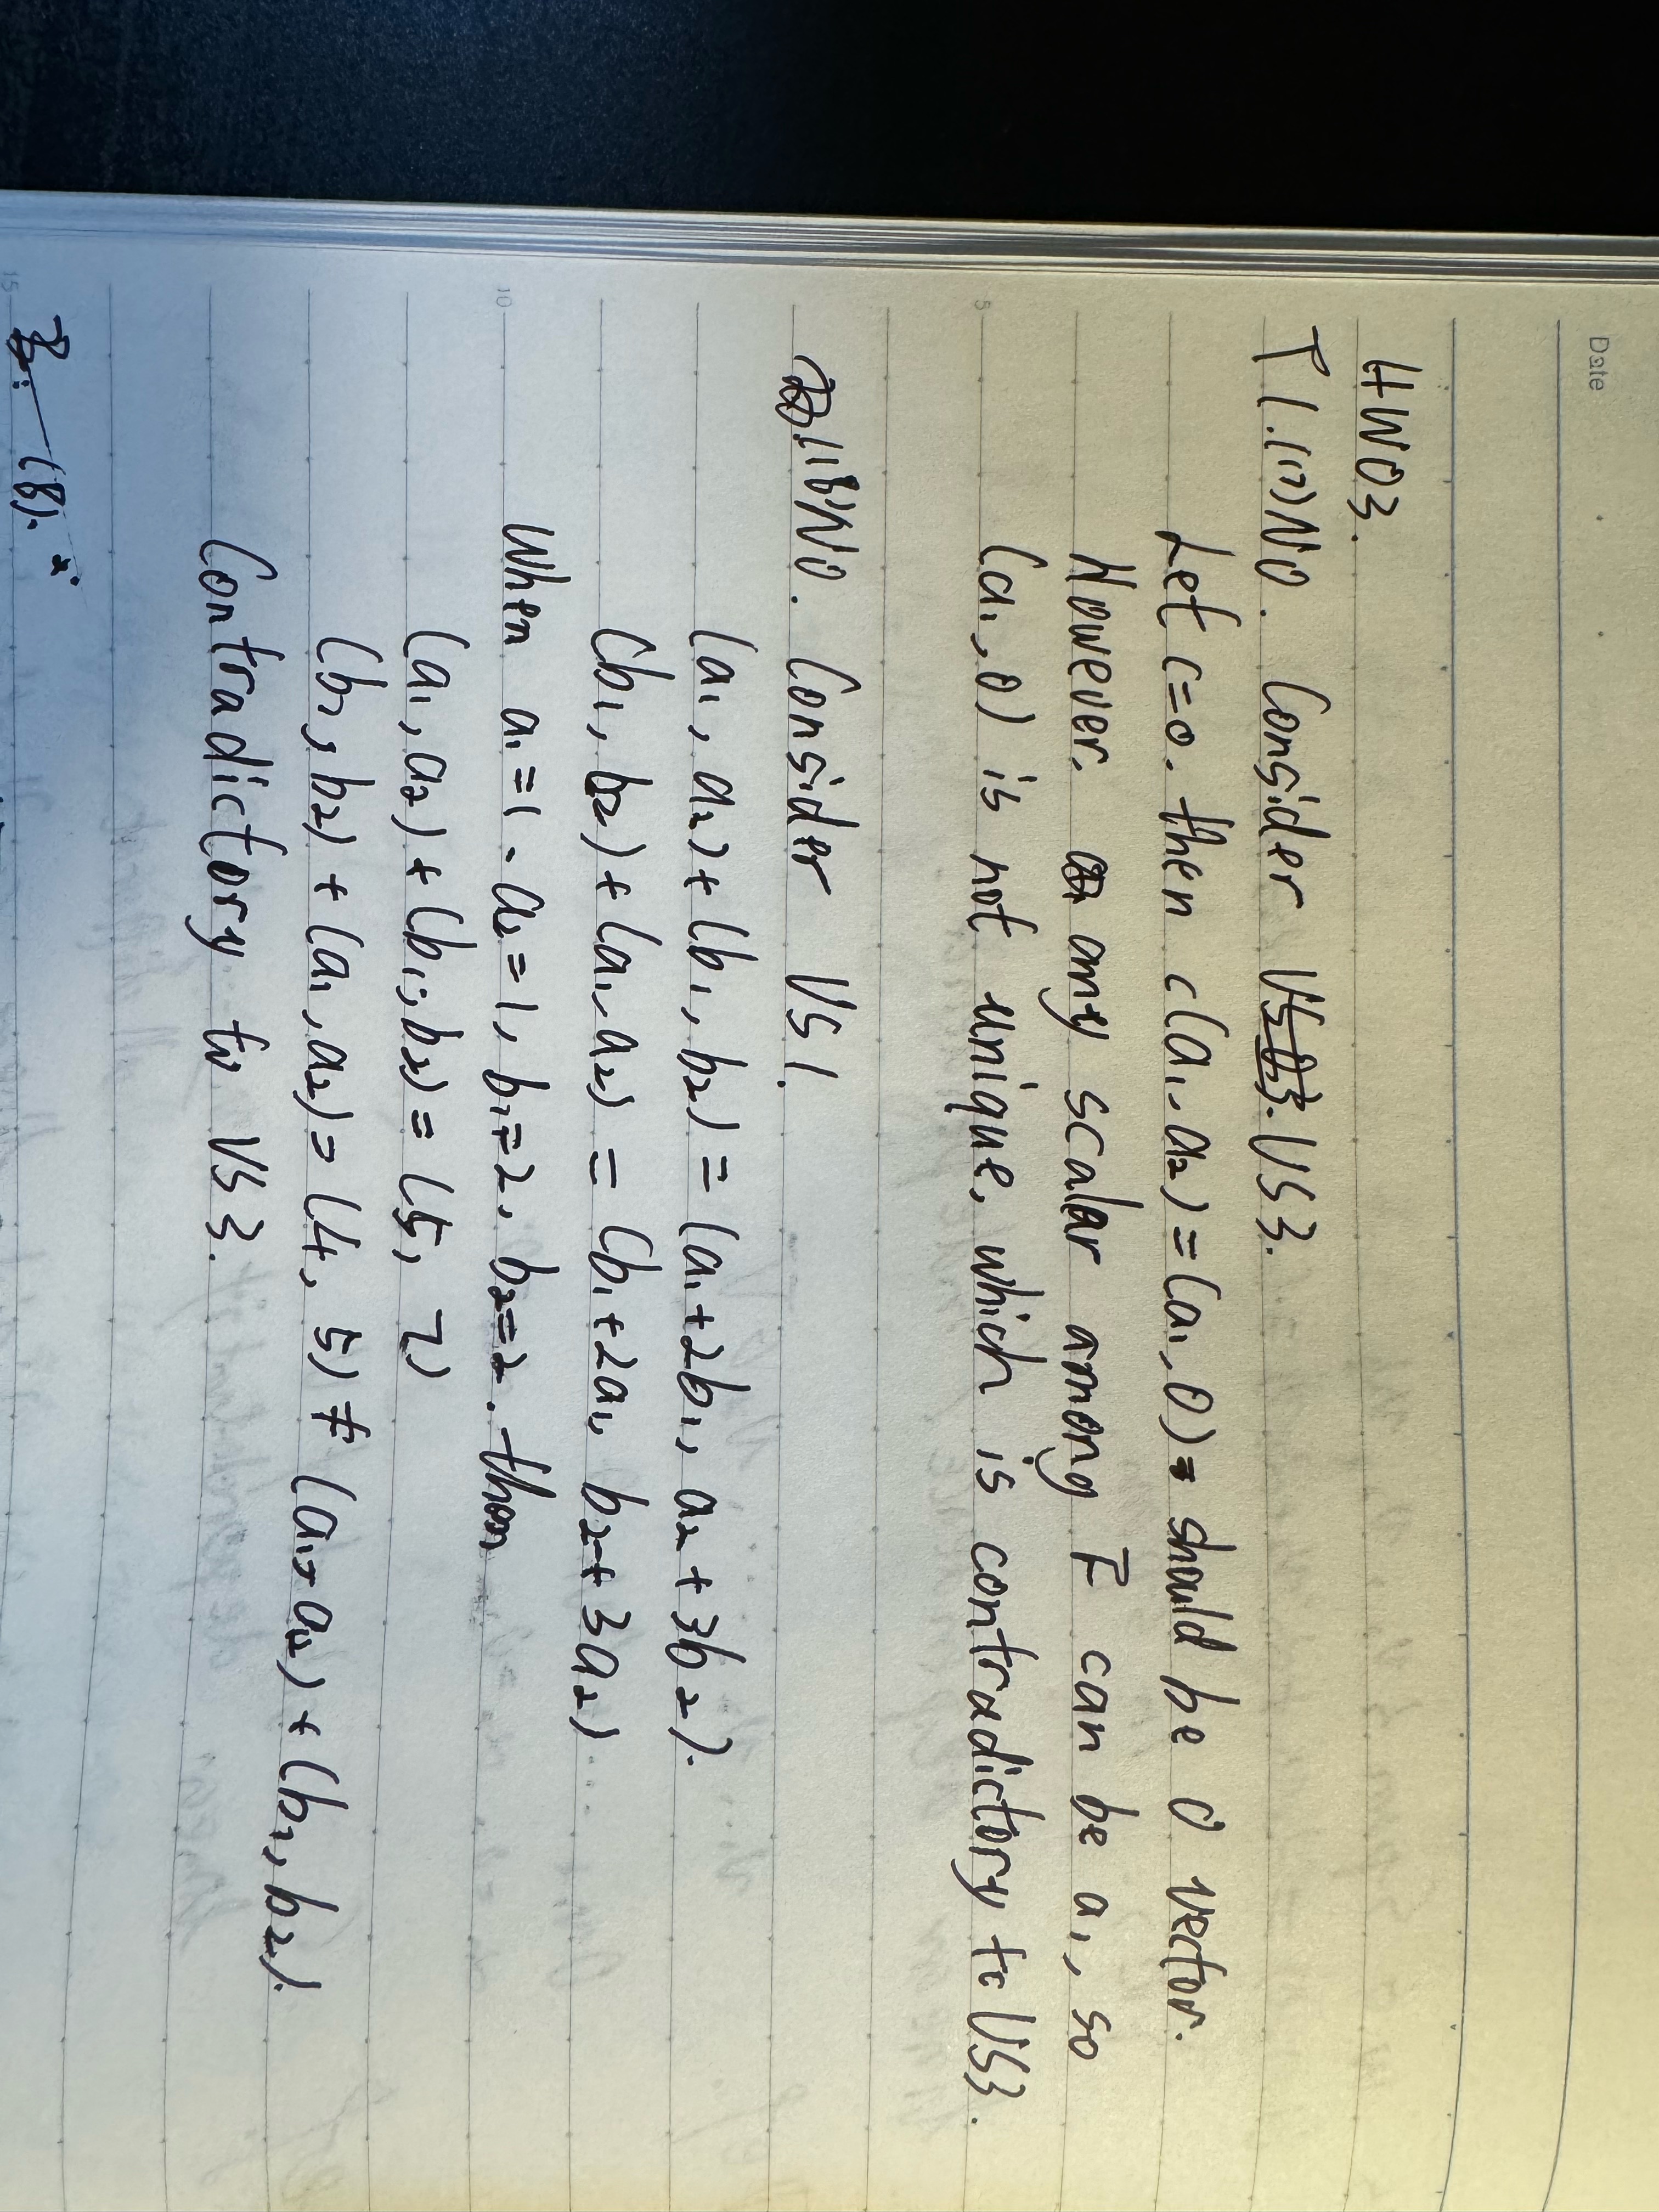 Date
HW03.
T 1.(17) NO. Consider VS 3. VS 3.
Let c=0. then c(a₁, a₂) = (a₁, 0) = should be 0 vector.
However. any scalar among F can be a₁, so
(a₁, 0) is not unique, which is contradictory to VS3.
5
(18) NO. Consider VS 1.
(a₁, a₂) + (b₁, b₂) = (a₁+2b₁, a₂+3b₂).
(b₁, b₂) + (a₁, a₂) = (b₁+2a₁, b₂+3a₂)
10
When a₁=1. a₂=1, b₁=2, b₂=2. then
(a₁, a₂) + (b₁, b₂) = (5, 7)
(b₁, b₂) + (a₁, a₂) = (4, 5) ≠ (a₁, a₂) + (b₁, b₂).
Contradictory to VS 3.
15
(8).